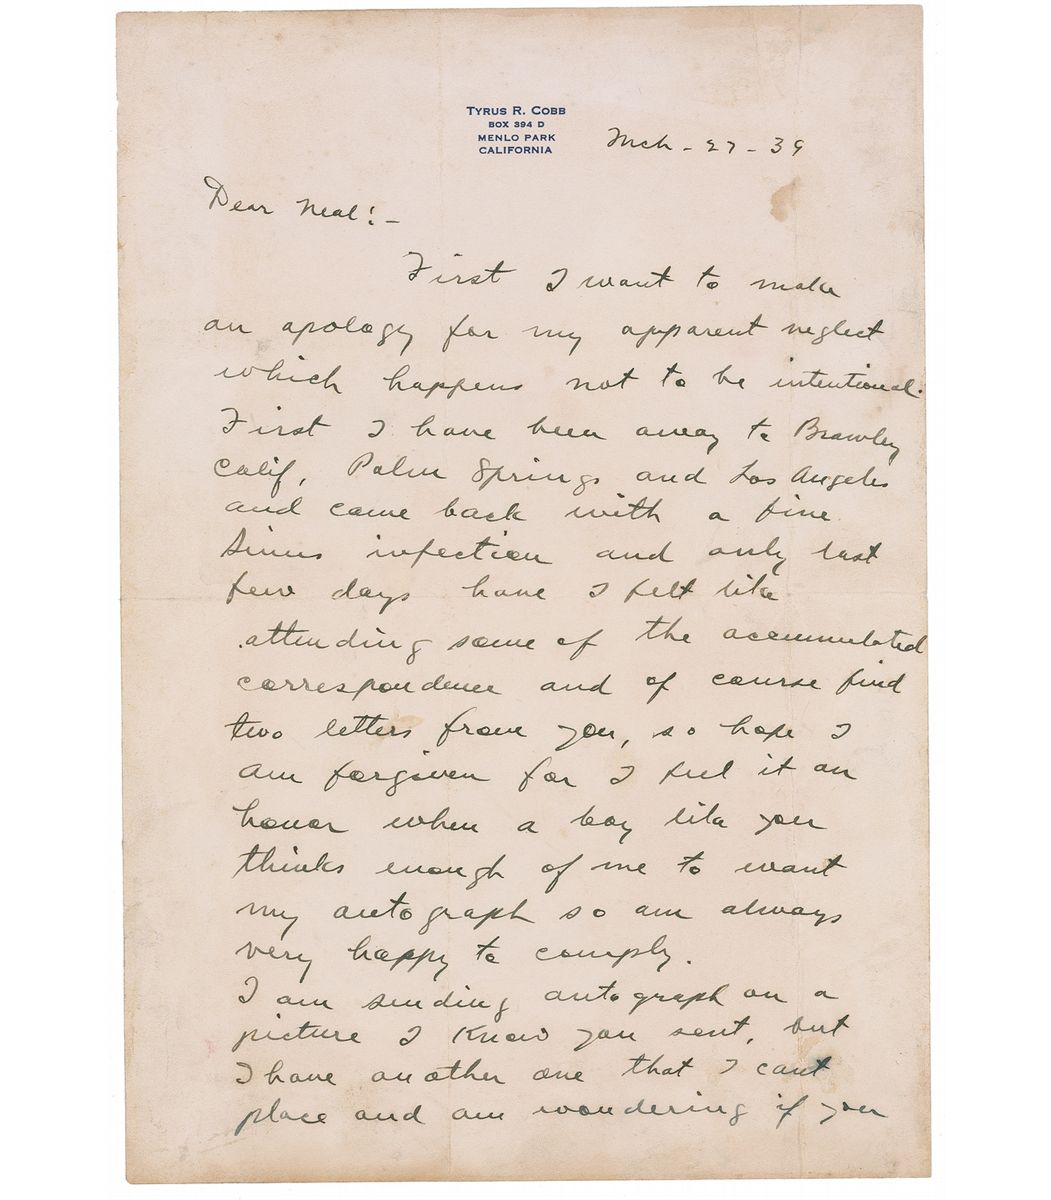 TYRUS R. COBB
BOX 394 D
MENLO PARK
CALIFORNIA
Mch - 27 - 39
Dear Neal: -
First I want to make
an apology for my apparent neglect
which happens not to be intentional.
First I have been away to Brawley
Calif, Palm Springs and Los Angeles
and came back with a fine
sinus infection and only last
few days have I felt like
attending some of the accumulated
correspondence and of course find
two letters from you, so hope I
am forgiven for I feel it an
honor when a boy like you
thinks enough of me to want
my autograph so am always
very happy to comply.
I am sending autograph on a
picture I know you sent, but
I have another one that I cant
place and am wondering if you